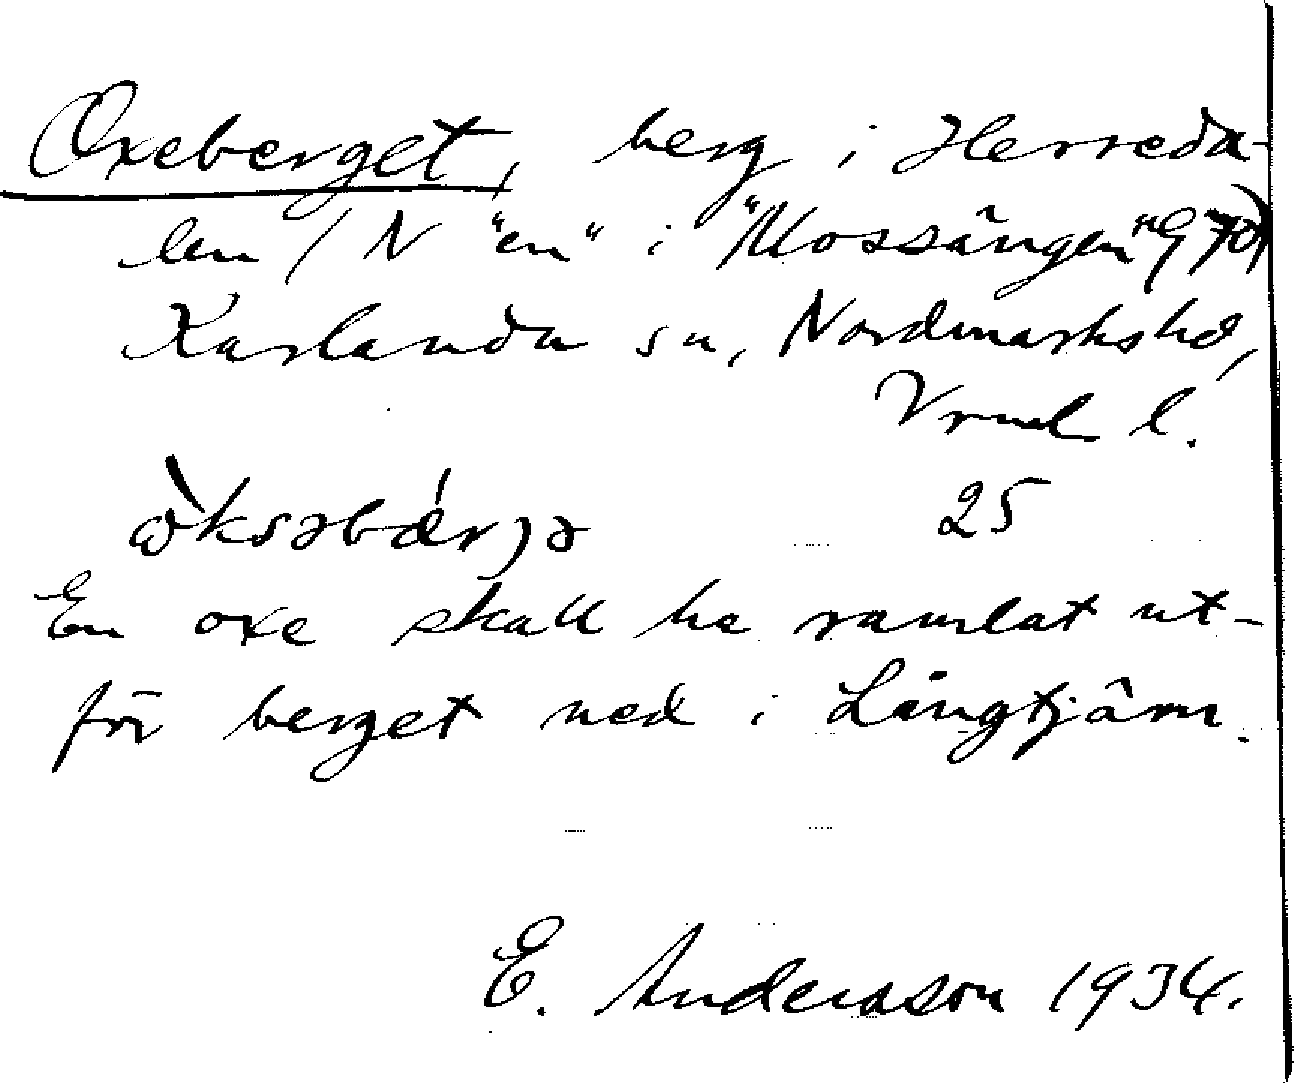 Oxeberget, berg i Herreda-
len (N "en" i "Mossängen" G 70)
Karlanda sn, Nordmarks hd,
Vrml l.
ɷ̀ksəbǽrjə 25
En oxe skall ha ramlat ut-
för berget ned i Långtjärn.
E. Andersson 1934.